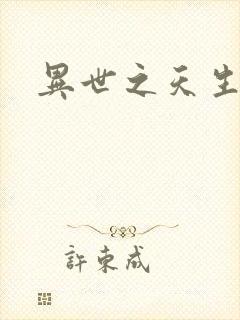 異世之天生
許東成